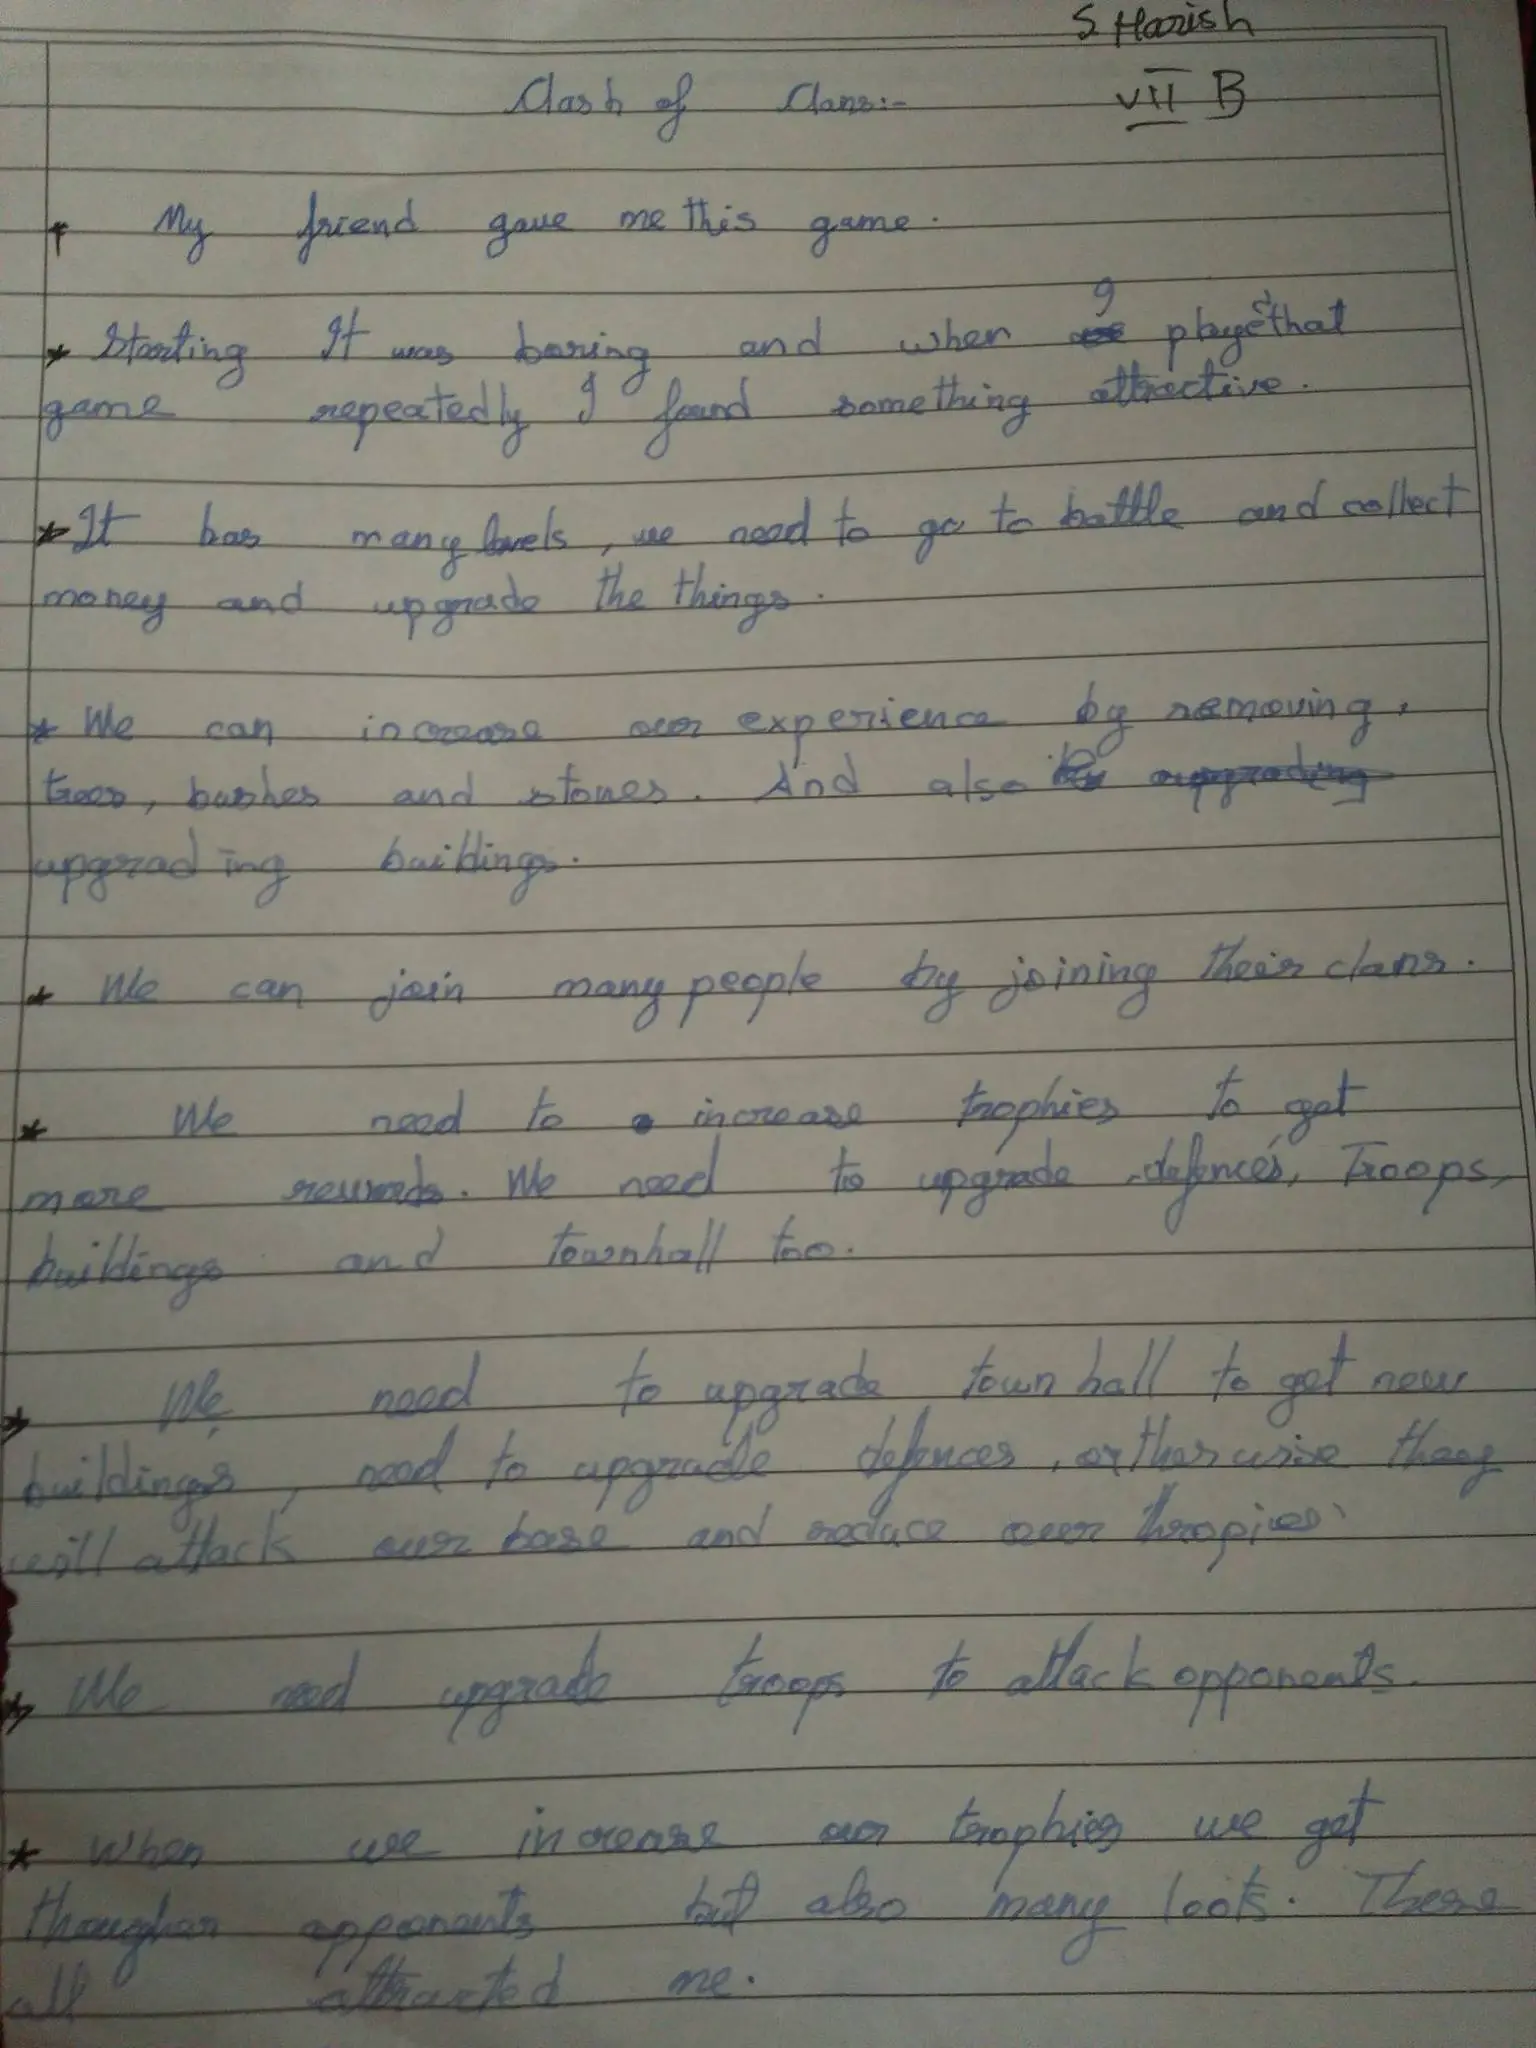 S Harish
Clash of Clans:-
VII B
* My friend gave me this game.
* Starting It was boring and when I played that
game repeatedly I found something attractive.
* It has many levels, we need to go to battle and collect
money and upgrade the things.
* We can increase our experience by removing
trees, bushes and stones. And also by upgrading
upgrading buildings.
* We can join many people by joining their clans.
* We need to increase trophies to get
more rewards. We need to upgrade defences, Troops,
buildings and townhall too.
* We need to upgrade town hall to get new
buildings, need to upgrade defences, otherwise they
will attack our base and reduce our thropies.
* We need upgrade troops to attack opponents.
* When we increase our trophies we get
thougher opponents but also many loots. These
all attracted me.